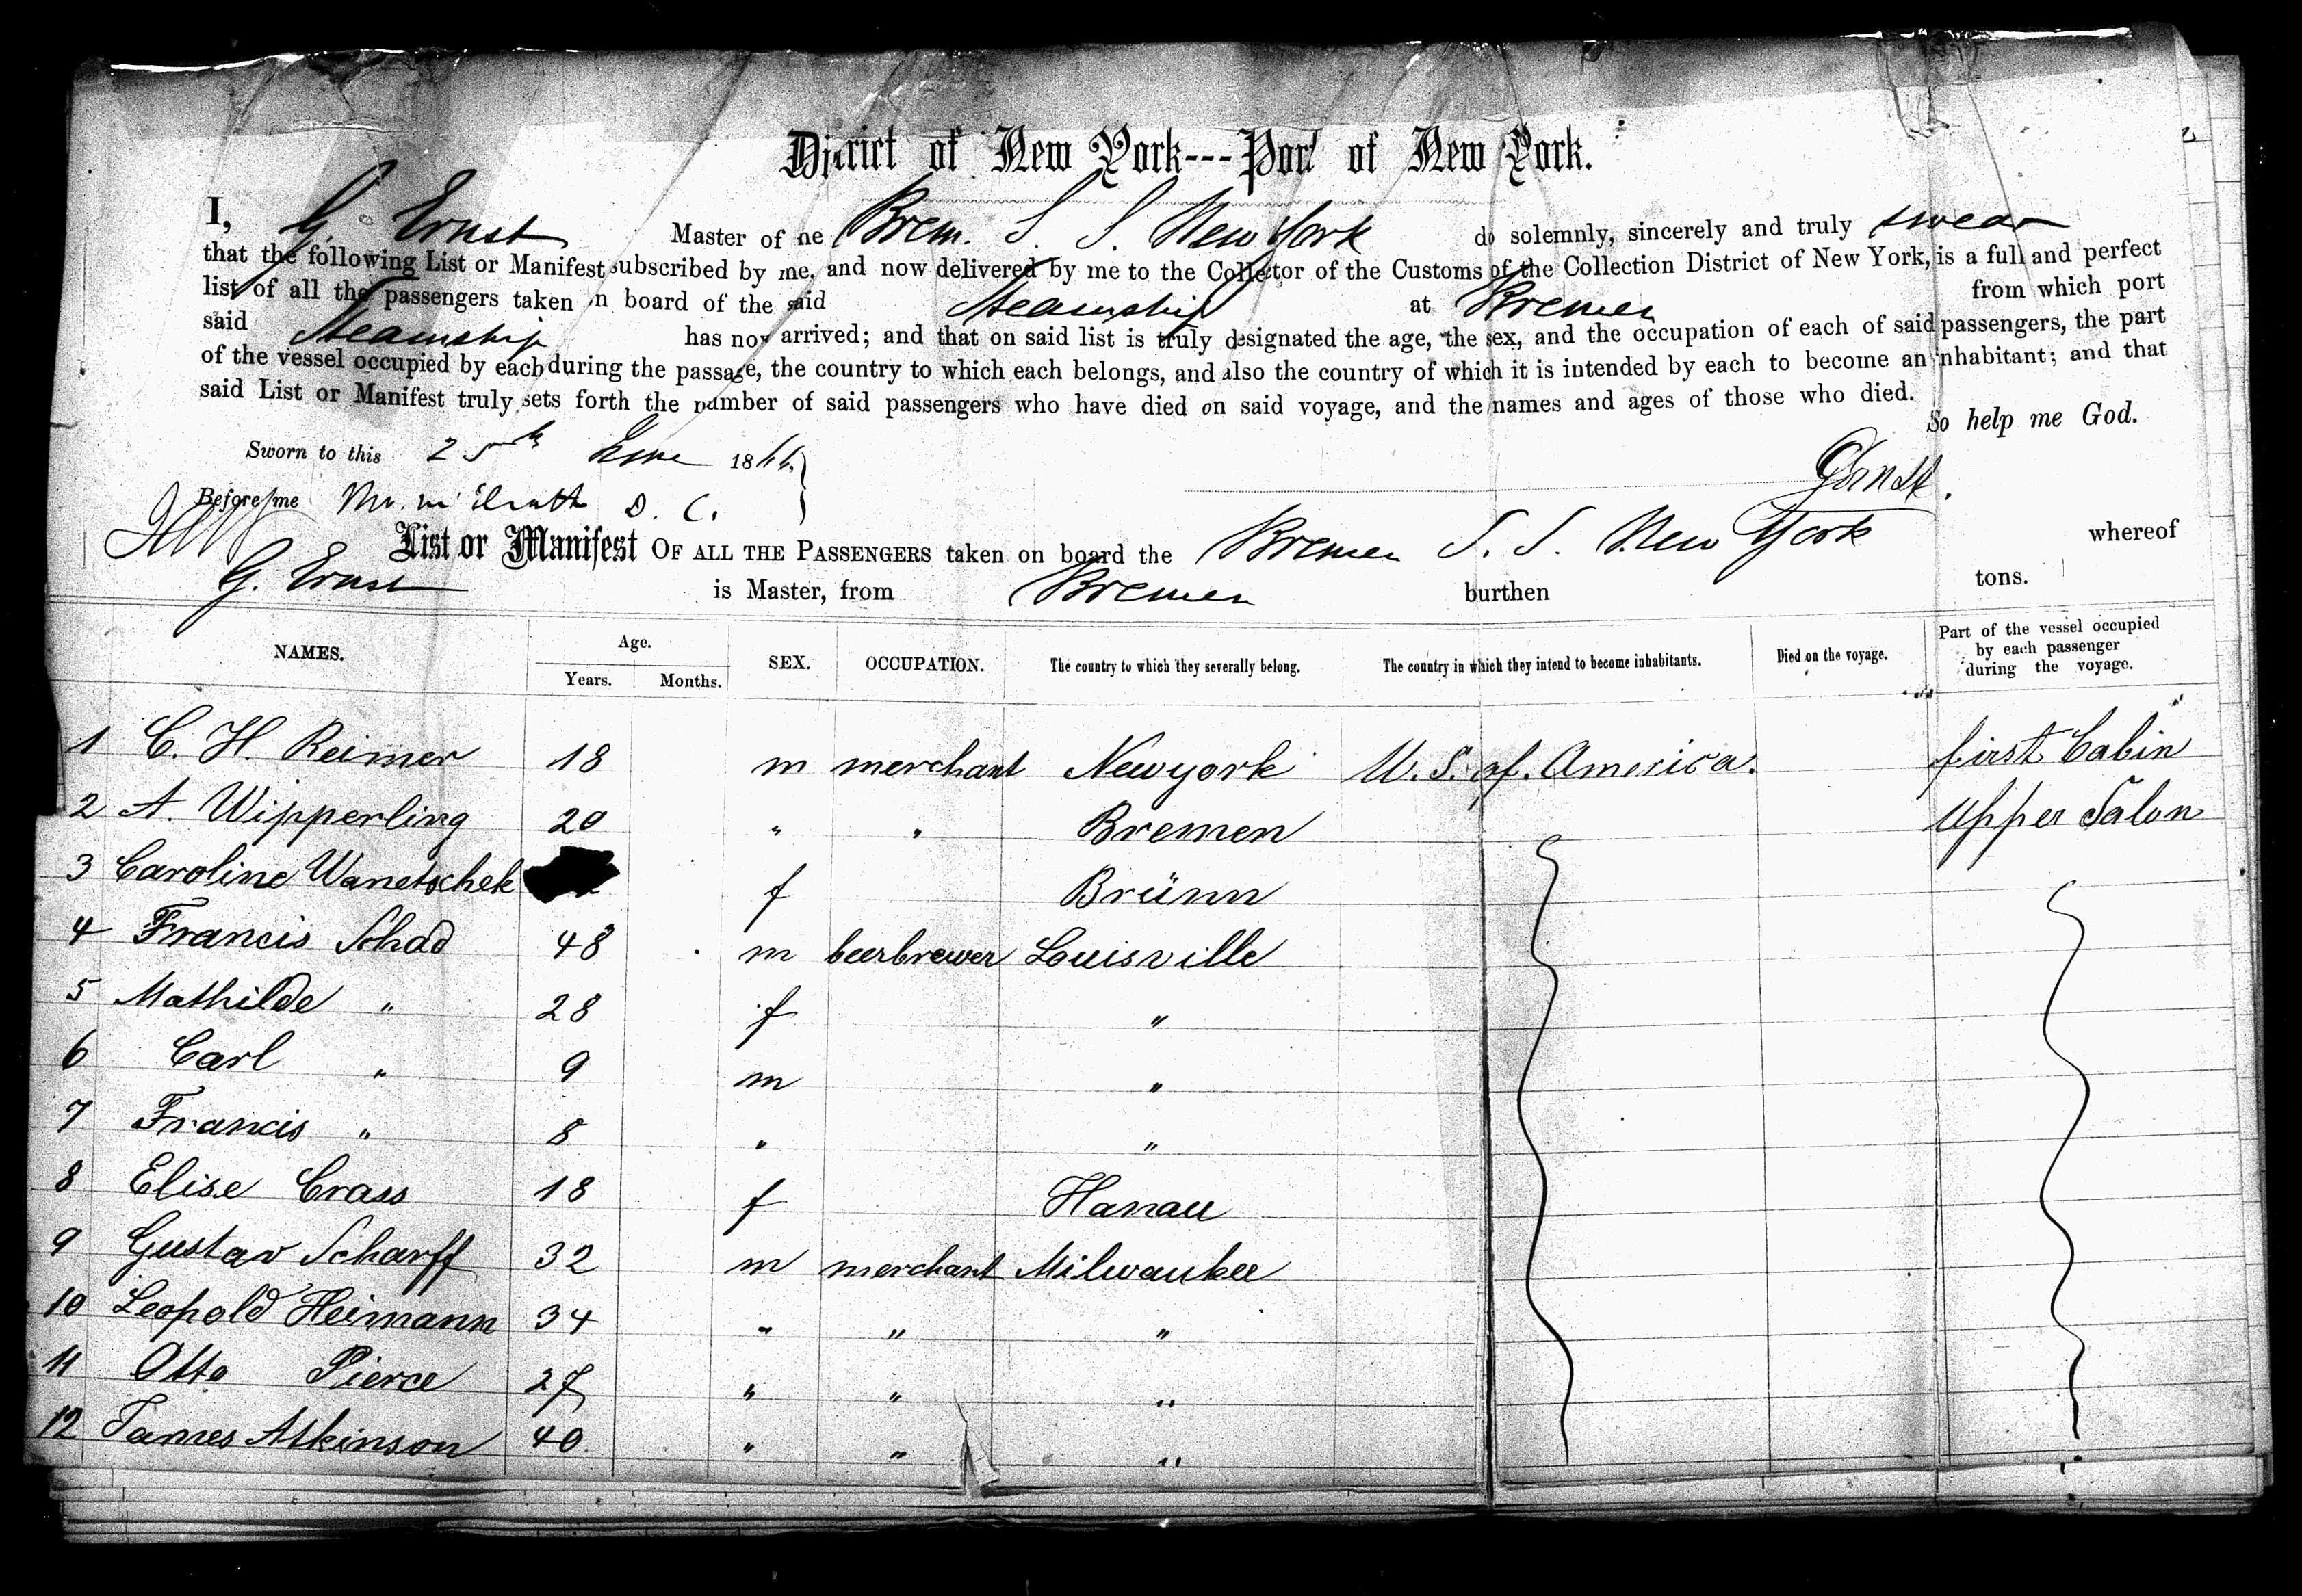 District of New York---Port of New York.
I, G. Ernst Master of he Brem. S. S. New York do solemnly, sincerely and truly swear
that the following List or Manifest subscribed by me, and now delivered by me to the Collector of the Customs of the Collection District of New York, is a full and perfect
list of all the passengers taken on board of the said Steamship at Bremen from which port
said Steamship has now arrived; and that on said list is truly designated the age, the sex, and the occupation of each of said passengers, the part
of the vessel occupied by each during the passage, the country to which each belongs, and also the country of which it is intended by each to become an inhabitant; and that
said List or Manifest truly sets forth the number of said passengers who have died on said voyage, and the names and ages of those who died.
So help me God.
Sworn to this 25th June 1866
Before me D. C. GErnst.
List or Manifest OF ALL THE PASSENGERS taken on board the Bremen S. S. New York whereof
G. Ernst is Master, from Bremen burthen tons.
NAMES. Age. Years. Months. SEX. OCCUPATION. The country to which they severally belong. The country in which they intend to become inhabitants. Died on the voyage. Part of the vessel occupied by each passenger during the voyage.
1 C. H. Reimer 18 m merchant Newyork U. S. of. America. first Cabin
2 A. Wipperling 20 " " Bremen Upper Salon
3 Caroline Wanetschek f Brünn
4 Francis Schad 48 m beerbrewer Louisville
5 Mathilde " 28 f "
6 Carl " 9 m "
7 Francis " 8 " "
8 Elise Crass 18 f Hanau
9 Gustav Scharff 32 m merchant Milwaukee
10 Leopold Heimann 34 " " "
11 Otto Pierce 27 " " "
12 James Atkinson 40 " " "